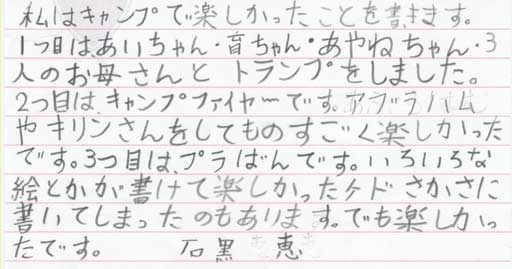 私はキャンプで楽しかったことを書きます。
1つ目は、あいちゃん・育ちゃん・あやねちゃん・3
人のお母さんと トランプをしました。
2つ目は、キャンプファイヤーです。アブラハム
やキリンさんをしてものすごく楽しかった
です。3つ目は、プラばんです。いろいろな
絵とかが書けて楽しかったケドさかさに
書いてしまったのもあります。でも楽しかっ
たです。 石黒 恵